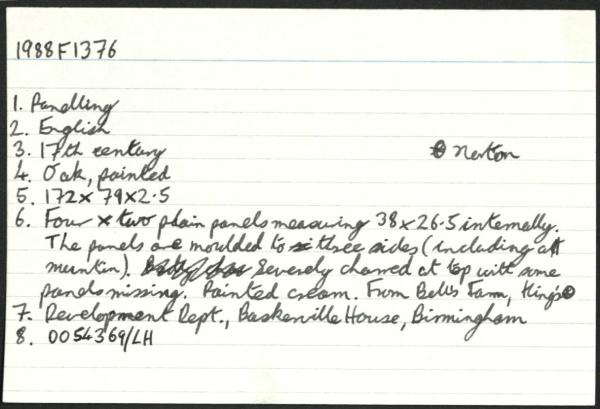 1988F1376
1. Panelling
2. English
3. 17th century
Nerton
4. Oak, painted
5. 172 x 79 x 2.5
6. Four x two plain panels measuring 38 x 26.5 internally.
The panels are moulded to three sides (including all
muntin). Severely charred at top with some
panels missing. Painted cream. From Bells Farm, King's
7. Development Dept., Baskerville House, Birmingham
8. 0054369/LH